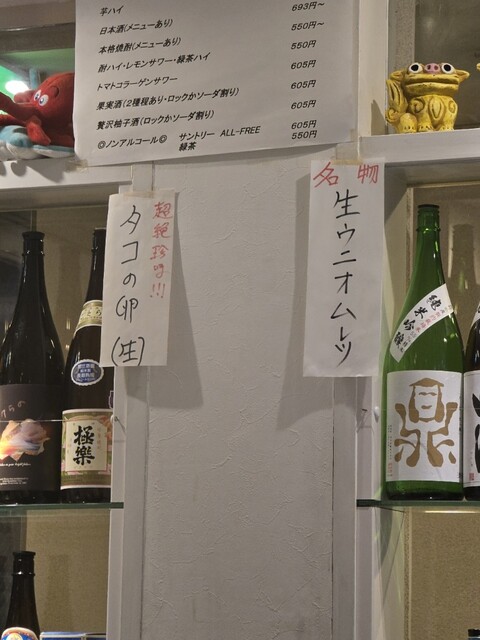 芋ハイ 693円～
日本酒(メニューあり) 550円～
本格焼酎(メニューあり) 550円
酎ハイ・レモンサワー・緑茶ハイ 605円
トマトコラーゲンサワー 605円
果実酒(2種程あり・ロックかソーダ割り) 605円
贅沢柚子酒(ロックかソーダ割り) 605円
◎ノンアルコール◎ サントリー ALL-FREE 605円
緑茶 550円
超絶珍味!!!
タコの卵(生)
名物
生ウニオムレツ
極樂
純米吟醸
鼎